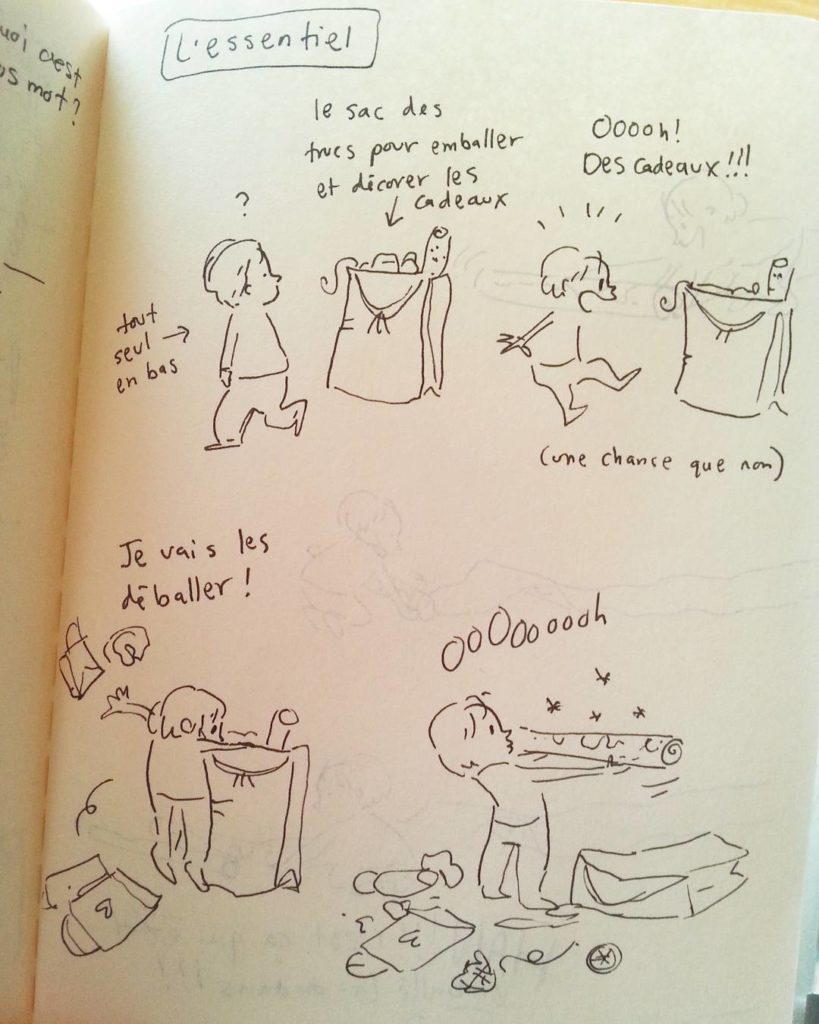 uoi c'est
mot?
L'essentiel
le sac des
trucs pour emballer
et décorer les
cadeaux
?
tout
seul
en bas
Ooooh!
Des cadeaux!!!
(une chance que non)
Je vais les
déballer!
OoOOooooh